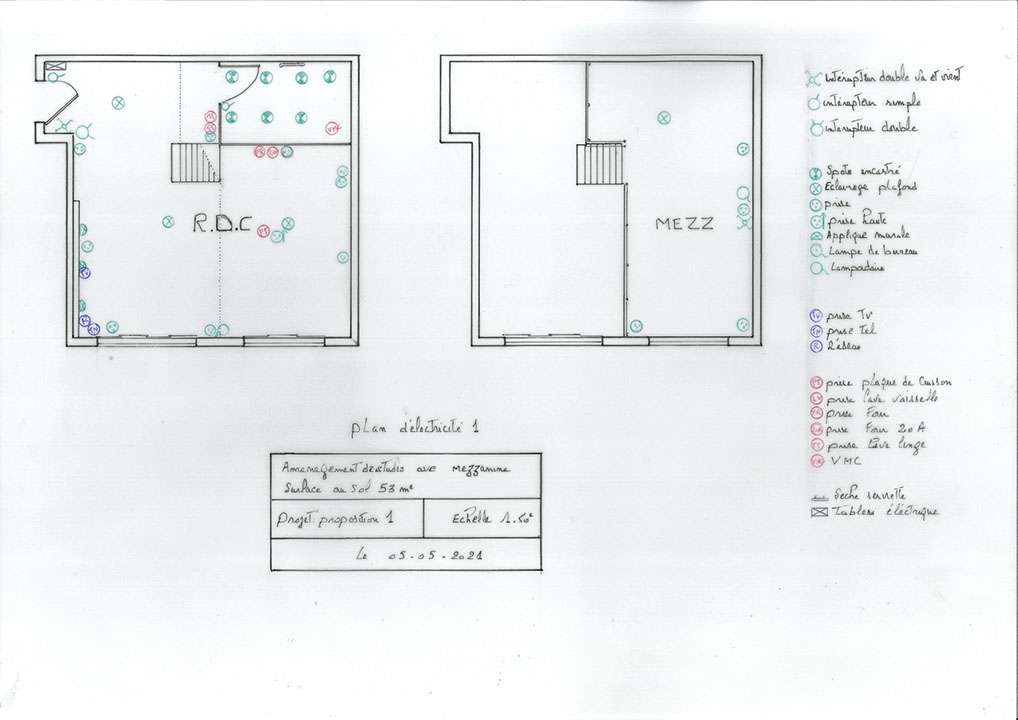 R.D.C
MEZZ
VMC
Intérupteur double va et vient
intérupteur simple
interupteur double
Spots encastré
Eclairage plafond
prise
prise haute
Applique murale
Lampe de bureau
Lampadaire
TV prise TV
prise Tel
R Réseau
prise plaque de Cuisson
LV prise lave vaisselle
prise Four
prise Four 20 A
prise lave linge
VMC
Seche serviette
Tableau éléctrique
plan d'électricité 1
Amenagement de studio ave mezzanine
Surface au Sol 53 m²
Projet: proposition 1
Echelle 1.50e
Le 05-05-2021